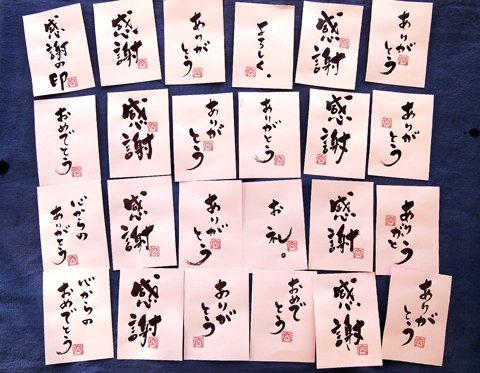 感謝の印
感謝
ありが
とう
よろしく。
感謝
ありが
とう
おめでとう
感謝
ありが
とう
ありがとう
感謝
ありが
とう
心からの
ありがとう
感謝
ありが
とう
お礼。
感謝
ありが
とう
心からの
おめでとう
感謝
ありが
とう
おめで
とう
感謝
ありが
とう